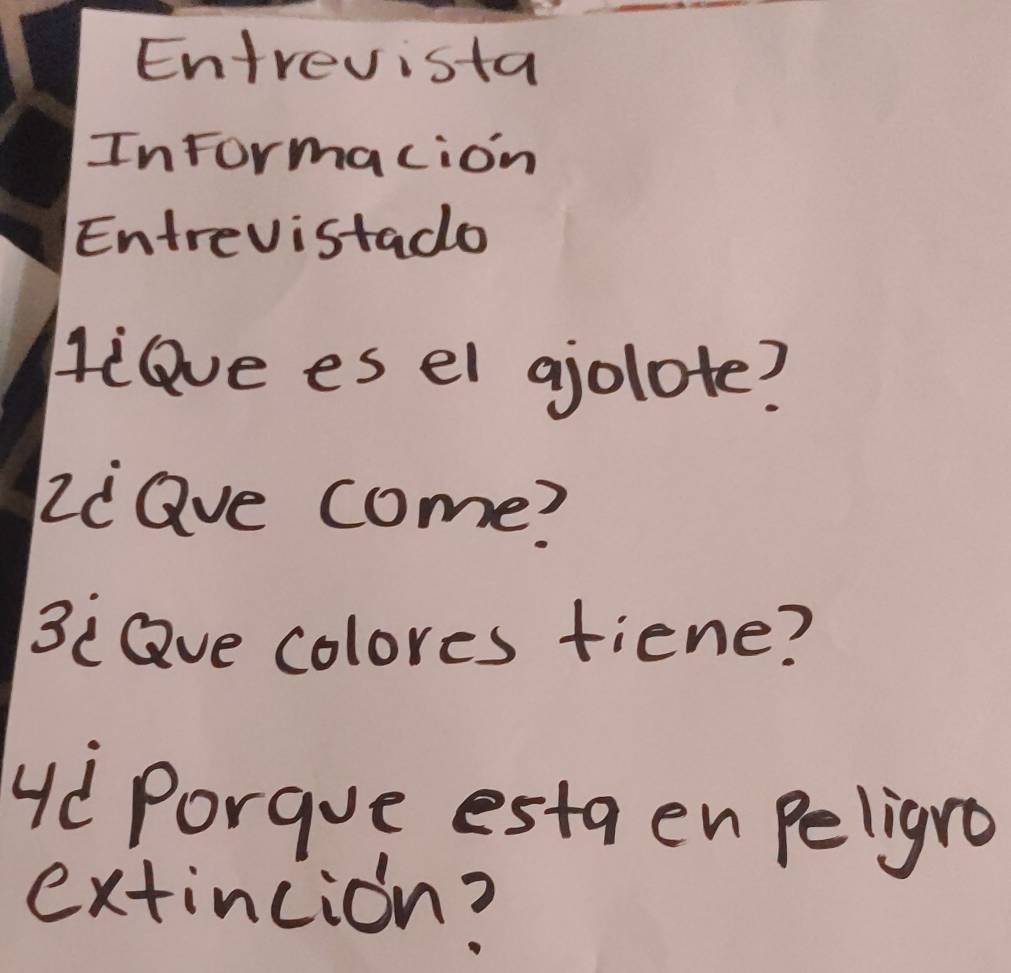 Entrevista
Información
Entrevistado
1¿Que es el ajolote?
2¿Que come?
3¿Que colores tiene?
4¿Porque esta en peligro
extinción?